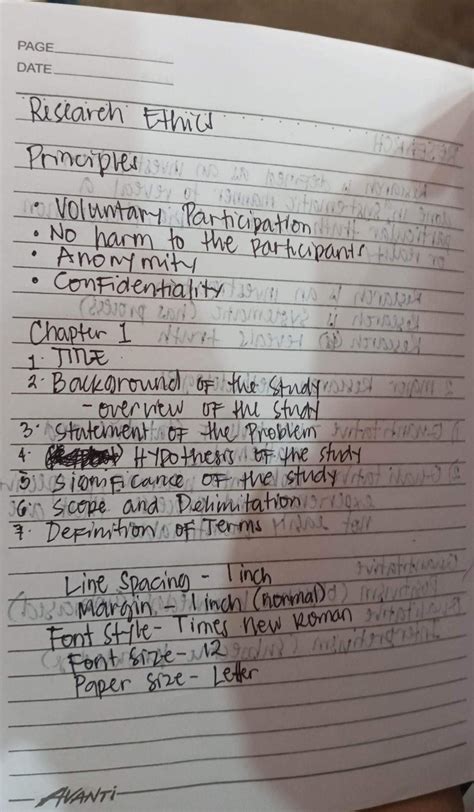 PAGE
DATE
Research Ethics
Principles
• Voluntary Participation
• No harm to the participants
• Anonymity
• Confidentiality
Chapter 1
1. TITLE
2. Background of the study
- overview of the study
3. Statement of the Problem
4. Hypothesis of the study
5 Significance of the study
6 Scope and Delimitation
7. Definition of Terms
Line Spacing - 1 inch
Margin - 1 inch (normal)
Font Style - Times New Roman
Font size - 12
Paper size - Letter
AVANTi